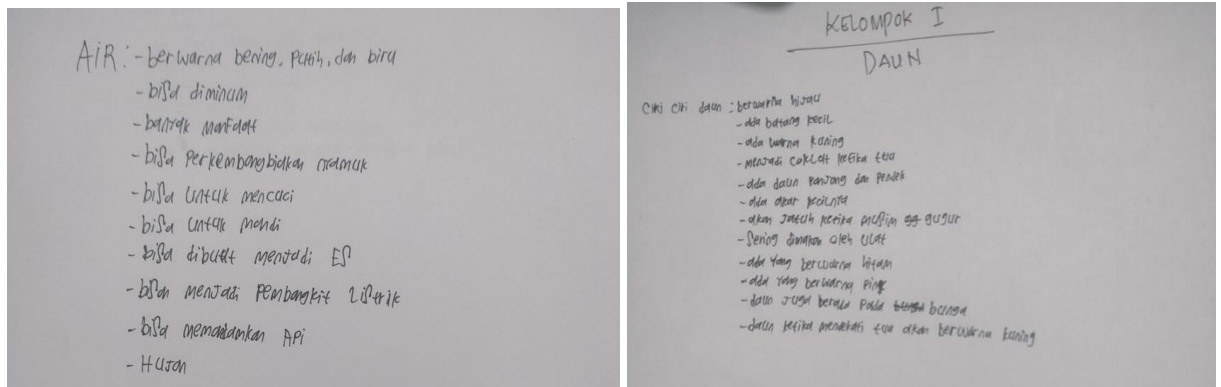 AiR : - berwarna bening, putih, dan biru
- bisa diminum
- banyak manfaat
- bisa perkembangbiakan nyamuk
- bisa untuk mencuci
- bisa untuk mandi
- bisa dibuat menjadi ES
- bisa menjadi pembangkit Listrik
- bisa memadamkan Api
- Hujan
KELOMPOK I
DAUN
Ciri ciri daun : berwarna hijau
- ada batang kecil
- ada warna kuning
- menjadi coklat ketika tua
- ada daun panjang dan pendek
- ada akar kecilnya
- akan jatuh ketika musim gugur
- Sering dimakan oleh ulat
- ada yang berwarna hitam
- ada yang berwarna pink
- daun juga berada pada bunga
- daun ketika mendekati tua akan berwarna kuning